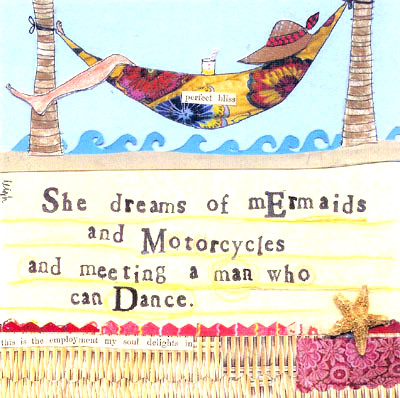 perfect bliss
She dreams of mErmaids
and Motorcycles
and meeting a man who
can Dance.
this is the employment my soul delights in